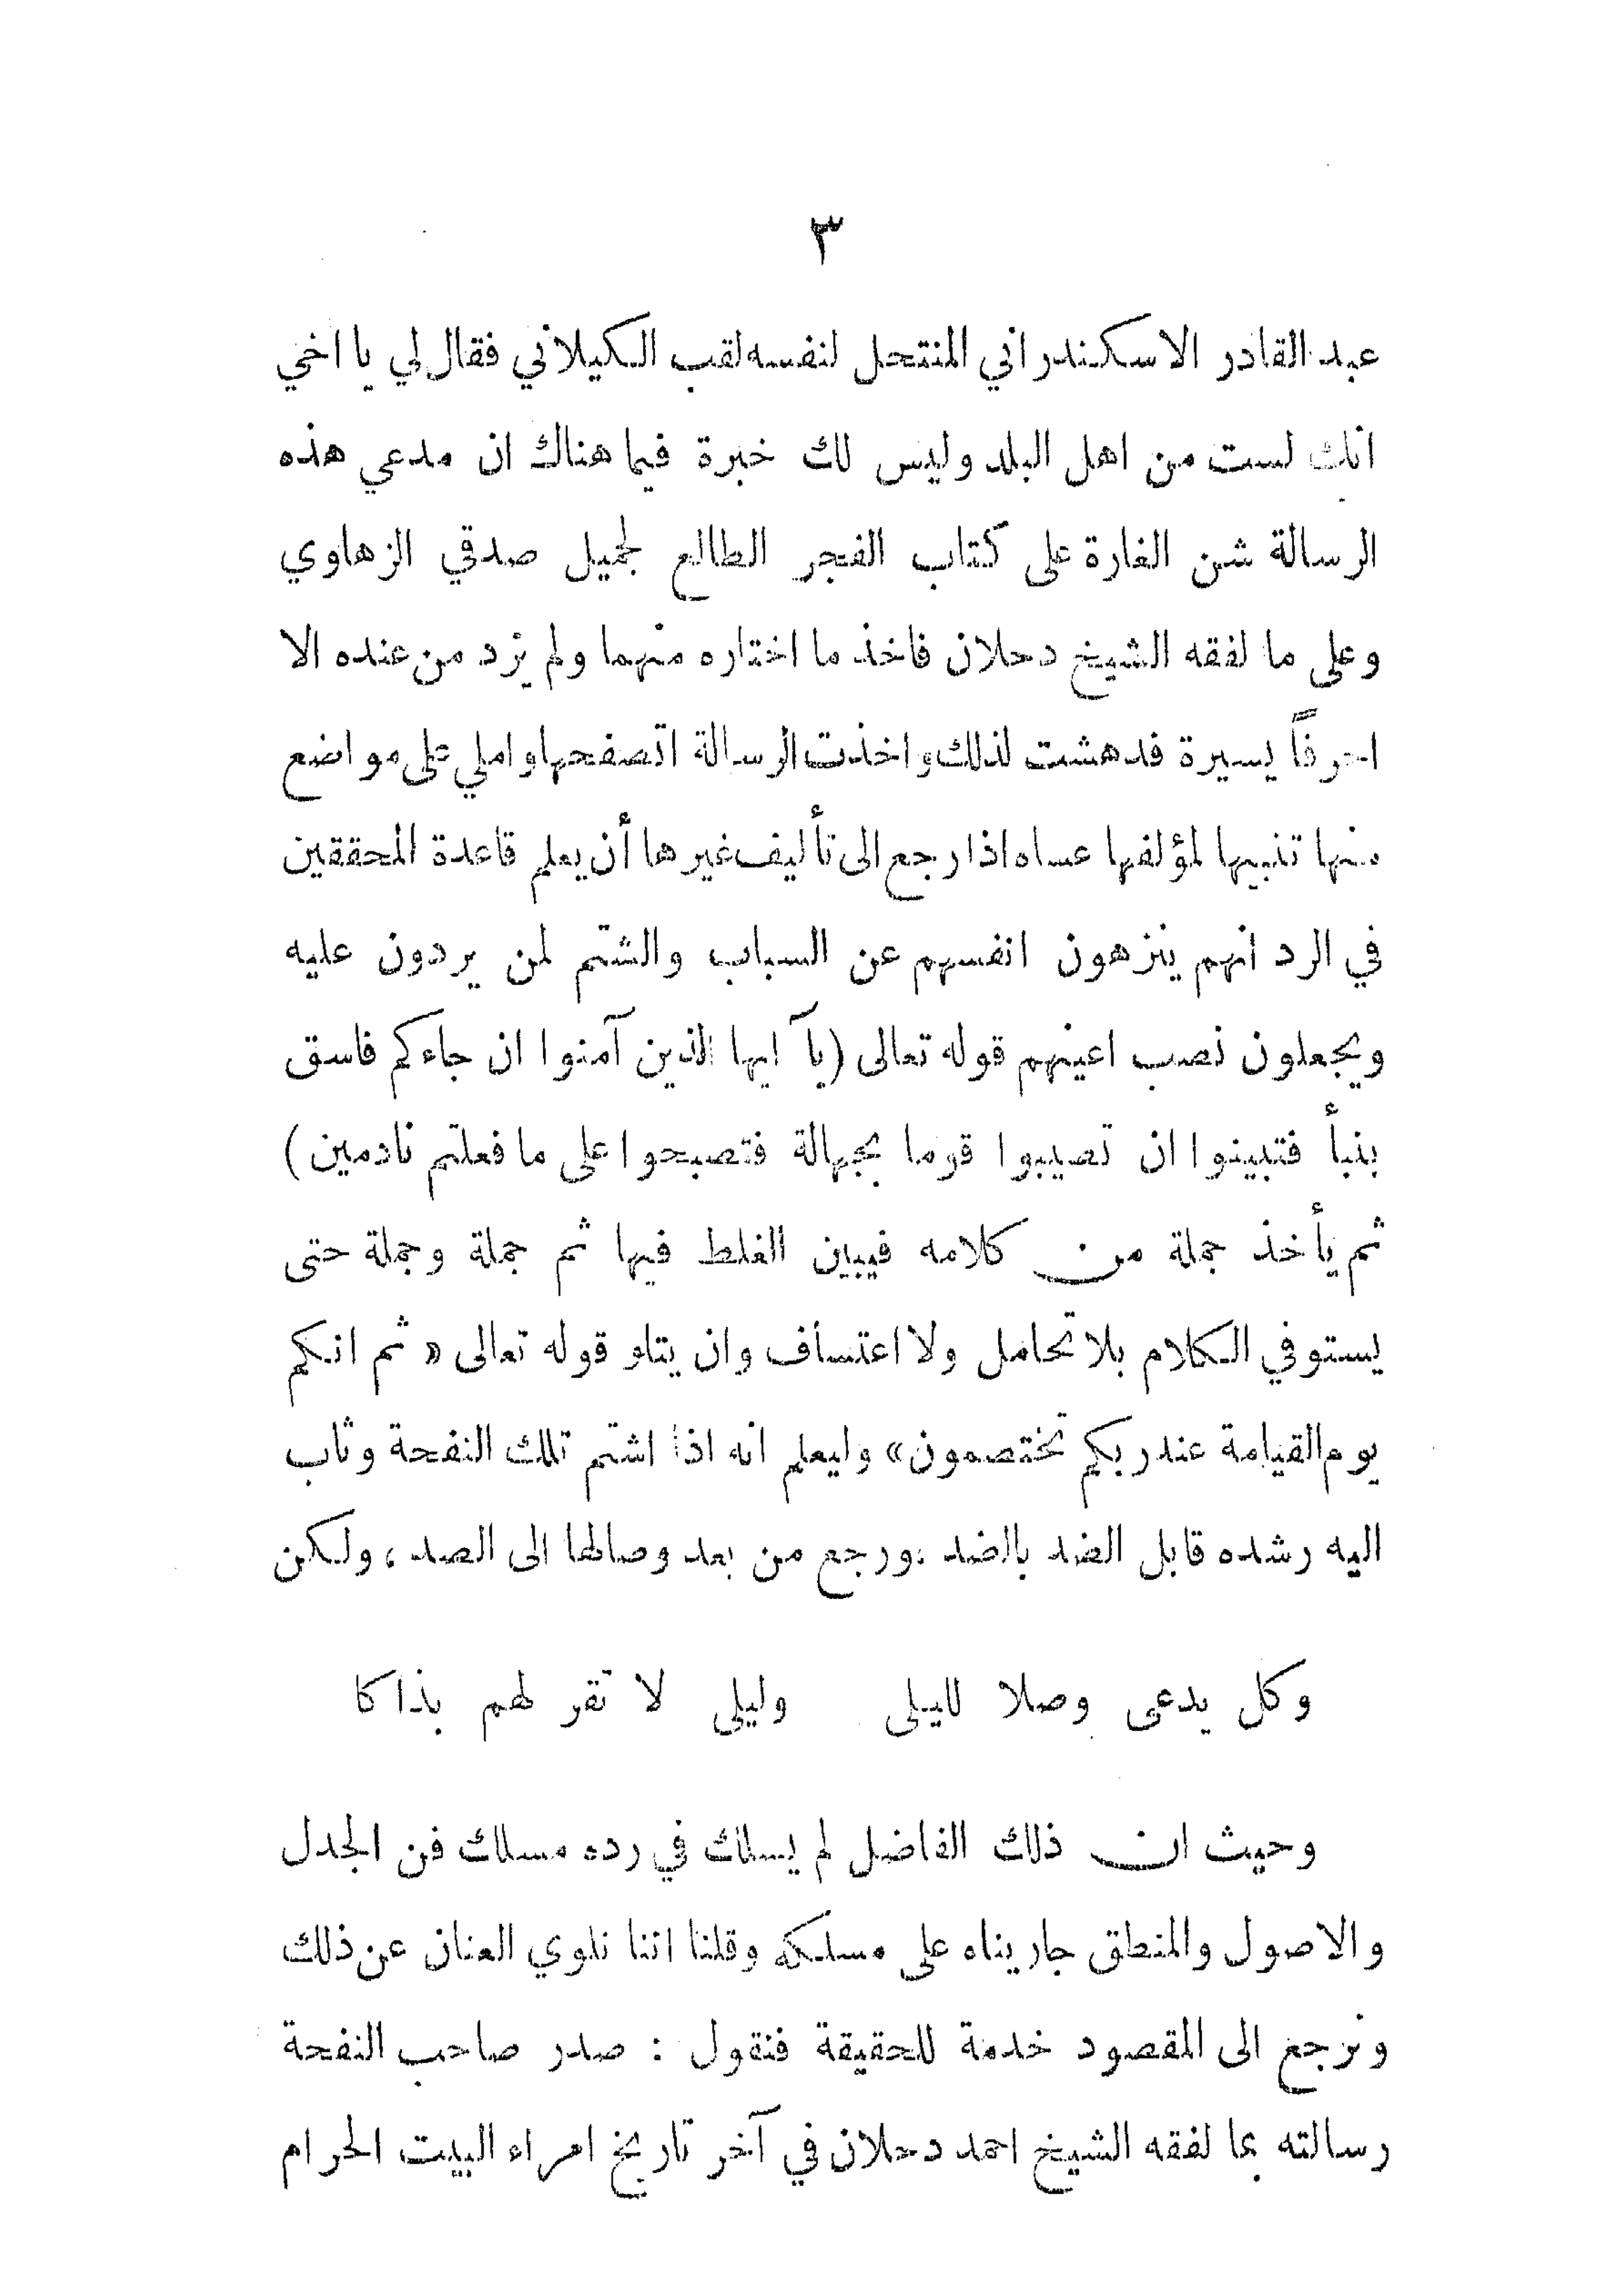 ٣
عبد القادر الاسكندراني المنتحل لنفسه لقب الكيلاني فقال لي يا اخي
انك لست من اهل البلد وليس لك خبرة فيما هناك ان مدعي هذه
الرسالة شن الغارة على كتاب الفجر الطالع لجميل صدقي الزهاوي
وعلى ما لفقه الشيخ دحلان فاخذ ما اختاره منهما ولم يزد من عنده الا
احرفاً يسيرة فدهشت لذلك واخذت الرسالة اتصفحها واملي على مواضع
منها تنبيها لمؤلفها عساه اذا رجع الى تأليف غيرها أن يعلم قاعدة المحققين
في الرد انهم ينزهون انفسهم عن السباب والشتم لمن يردون عليه
ويجعلون نصب اعينهم قوله تعالى (يآ ايها الذين آمنوا ان جاءكم فاسق
بنبأ فتبينوا ان تصيبوا قوما بجهالة فتصبحوا على ما فعلتم نادمين)
ثم يأخذ جملة من كلامه فيبين الغلط فيها ثم جملة وجملة حتى
يستوفي الكلام بلا تحامل ولا اعتسأف وان يتلو قوله تعالى « ثم انكم
يوم القيامة عند ربكم تختصمون» وليعلم انه اذا اشتم تلك النفحة وثاب
اليه رشده قابل الضد بالضد ،ورجع من بعد وصالها الى الصد ، ولكن
وكل يدعى وصلا لليلى وليلى لا تقر لهم بذاكا
وحيث ان ذلك الفاضل لم يسلك في رده مسلك فن الجدل
والاصول والمنطق جاريناه على مسلكه وقلنا اننا نلوي العنان عن ذلك
ونرجع الى المقصود خدمة للحقيقة فنقول : صدر صاحب النفحة
رسالته بما لفقه الشيخ احمد دحلان في آخر تاريخ امراء البيت الحرام